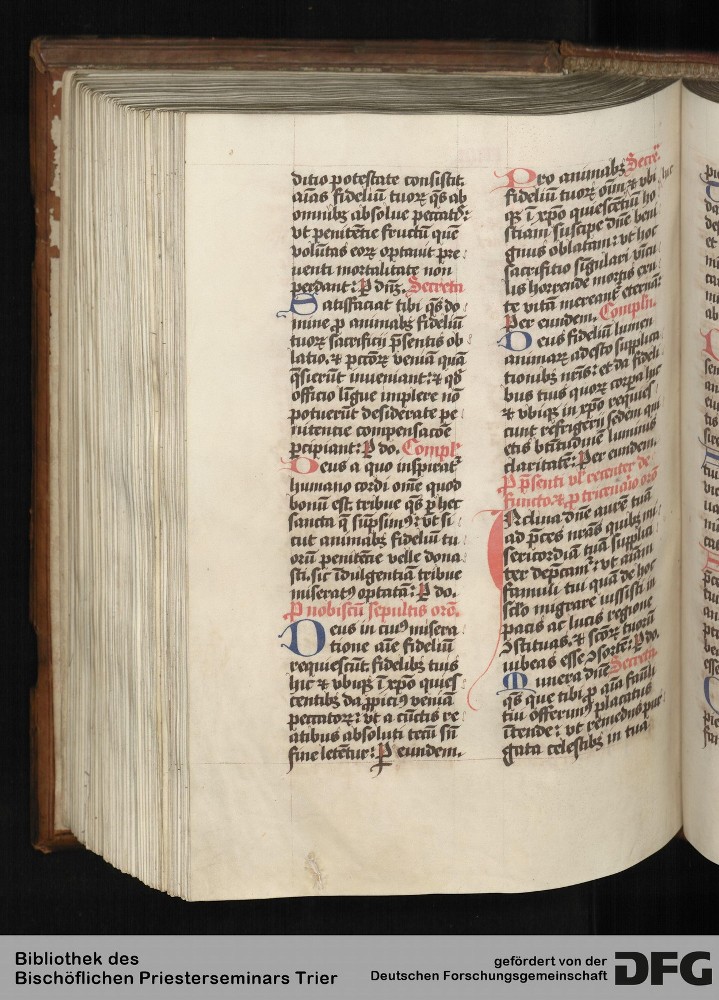 ditio potestate consistit.
aīas fideliū tuoꝝ q̄s ab
omnibꝫ absolue peccatꝭ:
vt penitētie fructū quē
volūtas eoꝝ optauit pre
uenti mortalitate non
perdant: ꝑ dn̄ꝫ. Secreta
Satisfaciat tibi q̄s do
mine ꝓ animabꝫ fideliū
tuoꝝ sacrificij p̄sentis ob
latio. ⁊ pctōꝝ veniā quā
q̄sierūt inueniant: ⁊ qd̄
officio līgue implere nō
potuerūt desiderate pe
nitentie compensacōe
ꝑcipiant: ꝑ do. Compl̄
Deus a quo inspirat᷑
humano cordi om̄e quod
bonū est. tribue q̄s ꝑ hec
sancta q̄ sūpsimꝰ: vt si
cut animabꝫ fideliū tu
orū penitētie velle dona
sti. sic īdulgentiā tribue
miseratꝰ optatā: ꝑ do.
ꝓ nobiscū sepultis orō.
Deus in cuiꝰ misera
tione aīe fideliū
requiescūt. fidelibꝫ tuis
hic ⁊ vbiqꝫ ī xpo quies
centibꝫ da ꝓpiciꝰ veniā
peccatoꝝ: vt a cūctis re
atibus absoluti tecū sn̄
fine letētur: ꝑ eundem.
Pro animabꝫ Secre᷑
fidelium tuoꝝ oīm ⁊ vbi hic
qꝫ ī xpo quiescētiū ho
stiam suscipe dn̄e beni
gnus oblatam: vt hoc
sacrificio singulari vīcu
lis horrende mortis exu
te vitā mereant᷑ eternā:
Per eundem. Compln̄.
Deus fideliū lumen
animaꝝ adesto supplica
tionibꝫ nr̄is: et da fideli
bus tuis quoꝝ corpa hic
⁊ vbiqꝫ in xpo requies
cunt refrigerij sedem qui
etis btītudinē luminis
claritatē: Per eundem.
ꝓ p̄senti vl̄ recenter de
functo. ⁊ ꝓ tricenario orō
Inclina dn̄e aurē tuā
ad p̄ces nr̄as quibꝫ mi
sericordiā tuā supplici
ter dep̄cam᷑: vt aīam
famuli tui quā de hoc
scl̄o migrare iussisti in
pacis ac lucis regione
ꝯstituas. ⁊ scōꝝ tuorū
iubeas esse ꝯsortē: ꝑ do.
Munera dn̄e Secreta
q̄s que tibi ꝓ aīa famli
tui offerimꝰ placatus
ītende: vt remedijs pur
gata celestibꝫ in tua
Bibliothek des
Bischöflichen Priesterseminars Trier
gefördert von der
Deutschen Forschungsgemeinschaft
DFG